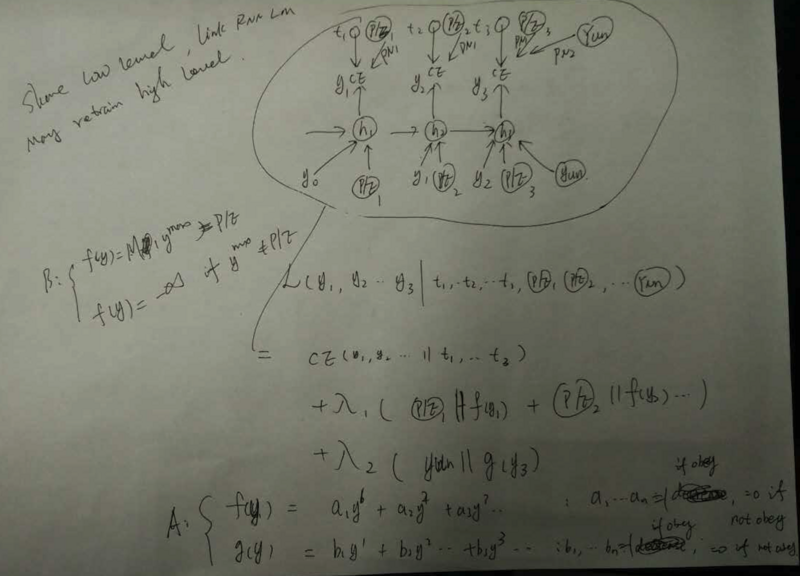 Share low level, link RNN LM
May retrain high level.
t₁ P/Z₁ t₂ P/Z₂ t₃ P/Z₃ Yun
PN1 PN1 PN1 PN2
y₁ CE y₂ CE y₃ CE
h₁ h₂ h₃
y₀ P/Z₁ y₁ P/Z₂ y₂ P/Z₃ Yun
B: { f(y) = yᵐᵃˣ = P/Z
f(y) = -∞ if yᵐᵃˣ ≠ P/Z
L(y₁, y₂ ·· y₃ | t₁, ·· t₂, ·· t₃, P/Z₁ P/Z₂, ··· Yun)
= CE(y₁, y₂ ··· || t₁, ·· t₃)
+ λ₁ ( P/Z₁ || f(y₁) + P/Z₂ || f(y₂) ··· )
+ λ₂ ( yun || g(y₃)
A: { f(y) = a₁y + a₂y + a₃y ·· : a₁ ··· aₙ = 1 if obey, = 0 if not obey
g(y) = b₁y¹ + b₂y² ·· + b₃y³ ·· : b₁, ·· bₙ = 1 if obey, = 0 if not obey